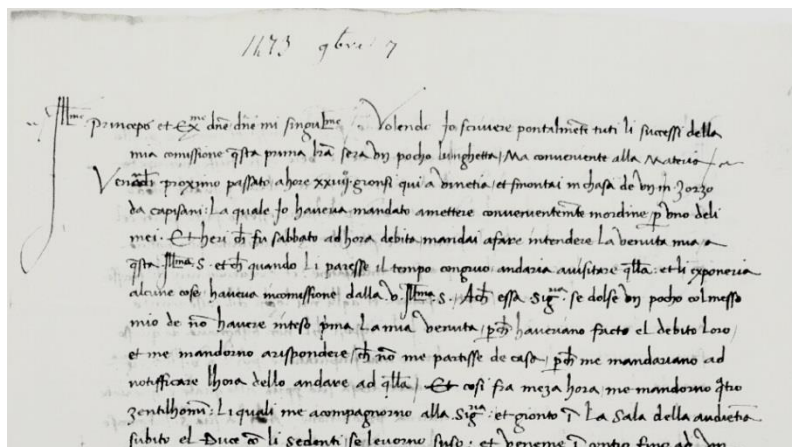 1473 9bris 7
Illme princeps et Exme dne dne mi singulme. Volendo Jo scrivere pontalmēte tuti li successi della
mia comissione q̄sta prima lr̄a sera vn pocho lunghetta, Ma conveniente alla Materia
Venadi proximo passato ahore xxiiij gionsi qui a vinetia, et smontai in chasa de vn m. Zorzo
da capisani: La quale Jo haveva mandato amettere convenientemēte inordine p̄ vno deli
mei. Et heri ch̄ fu sabbato ad hora debita, mandai afare intendere La venuta mia a
q̄sta Illma S. et ch̄ quando Li paresse il tempo congruo andaria avisitare q̄lla: et li exponeria
alcune cose haveva incomissione dalla v. Illma S. Ach̄ essa Sigria se dolse vn pocho col messo
mio de nō havere inteso p̄ma La mia venuta, p̄ch̄ haveriano facto el debito Loro,
et me mandorno arispondere, ch̄ nō me partisse de casa, p̄ch̄ me mandariano ad
notifficare lhora dello andare ad q̄lla, Et così fra meza hora, me mandorno q̄tro
zentilhomī: Li quali me acompagnorno alla Sigria: et gionto ī La Sala della audietia
subito el Duce cō li sedenti se levorno suso: et veneme ī contro fino ad